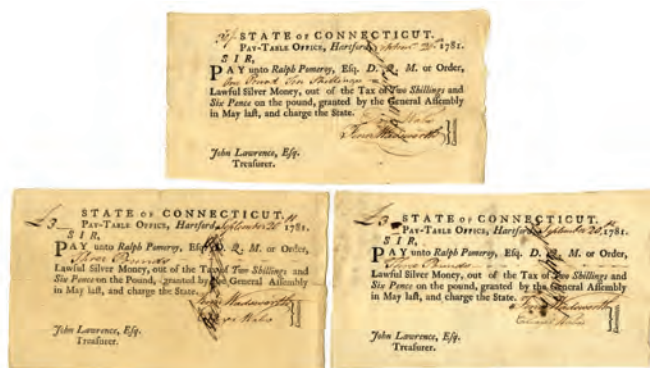 STATE OF CONNECTICUT.
PAY-TABLE OFFICE, Hartford, 1781.
SIR,
PAY unto Ralph Pomeroy, Esq. D. Q. M. or Order,
One Pound Ten Shillings
Lawful Silver Money, out of the Tax of Two Shillings and
Six Pence on the pound, granted by the General Assembly
in May last, and charge the State.
Fenn Wadsworth
John Lawrence, Esq.
Treasurer.
£3
STATE OF CONNECTICUT.
PAY-TABLE OFFICE, Hartford, September 20th 1781.
SIR,
PAY unto Ralph Pomeroy, Esq. D. Q. M. or Order,
Three Pounds
Lawful Silver Money, out of the Tax of Two Shillings and
Six Pence on the Pound, granted by the General Assembly
in May last, and charge the State.
Fenn Wadsworth
John Lawrence, Esq.
Treasurer.
£3
STATE OF CONNECTICUT.
PAY-TABLE OFFICE, Hartford, September 20th 1781.
SIR,
PAY unto Ralph Pomeroy, Esq. D. Q. M. or Order,
Three Pounds
Lawful Silver Money, out of the Tax of Two Shillings and
Six Pence on the Pound, granted by the General Assembly
in May last, and charge the State.
Fenn Wadsworth
John Lawrence, Esq.
Treasurer.